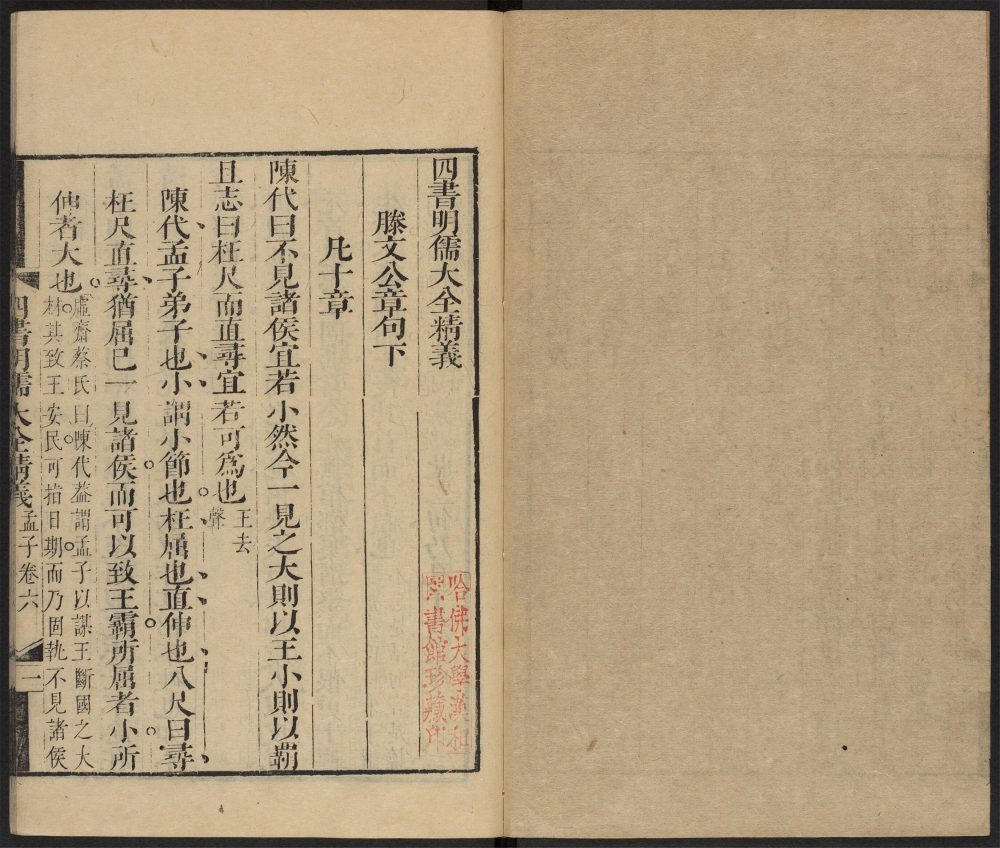 四書明儒大全精義
滕文公章句下
凡十章
陳代曰不見諸侯宜若小然今一見之大則以王小則以霸
且志曰枉尺而直尋宜若可爲也王去
聲
陳代孟子弟子也小謂小節也枉屈也直伸也八尺曰尋
枉尺直尋猶屈已一見諸侯而可以致王霸所屈者小所
伸者大也虛齋蔡氏曰陳代葢謂孟子以謀王斷國之大
材其致王安民可指日期而乃固執不見諸侯
四書明儒大全精義 孟子卷六 一
哈佛大學漢和
圖書館珍藏印